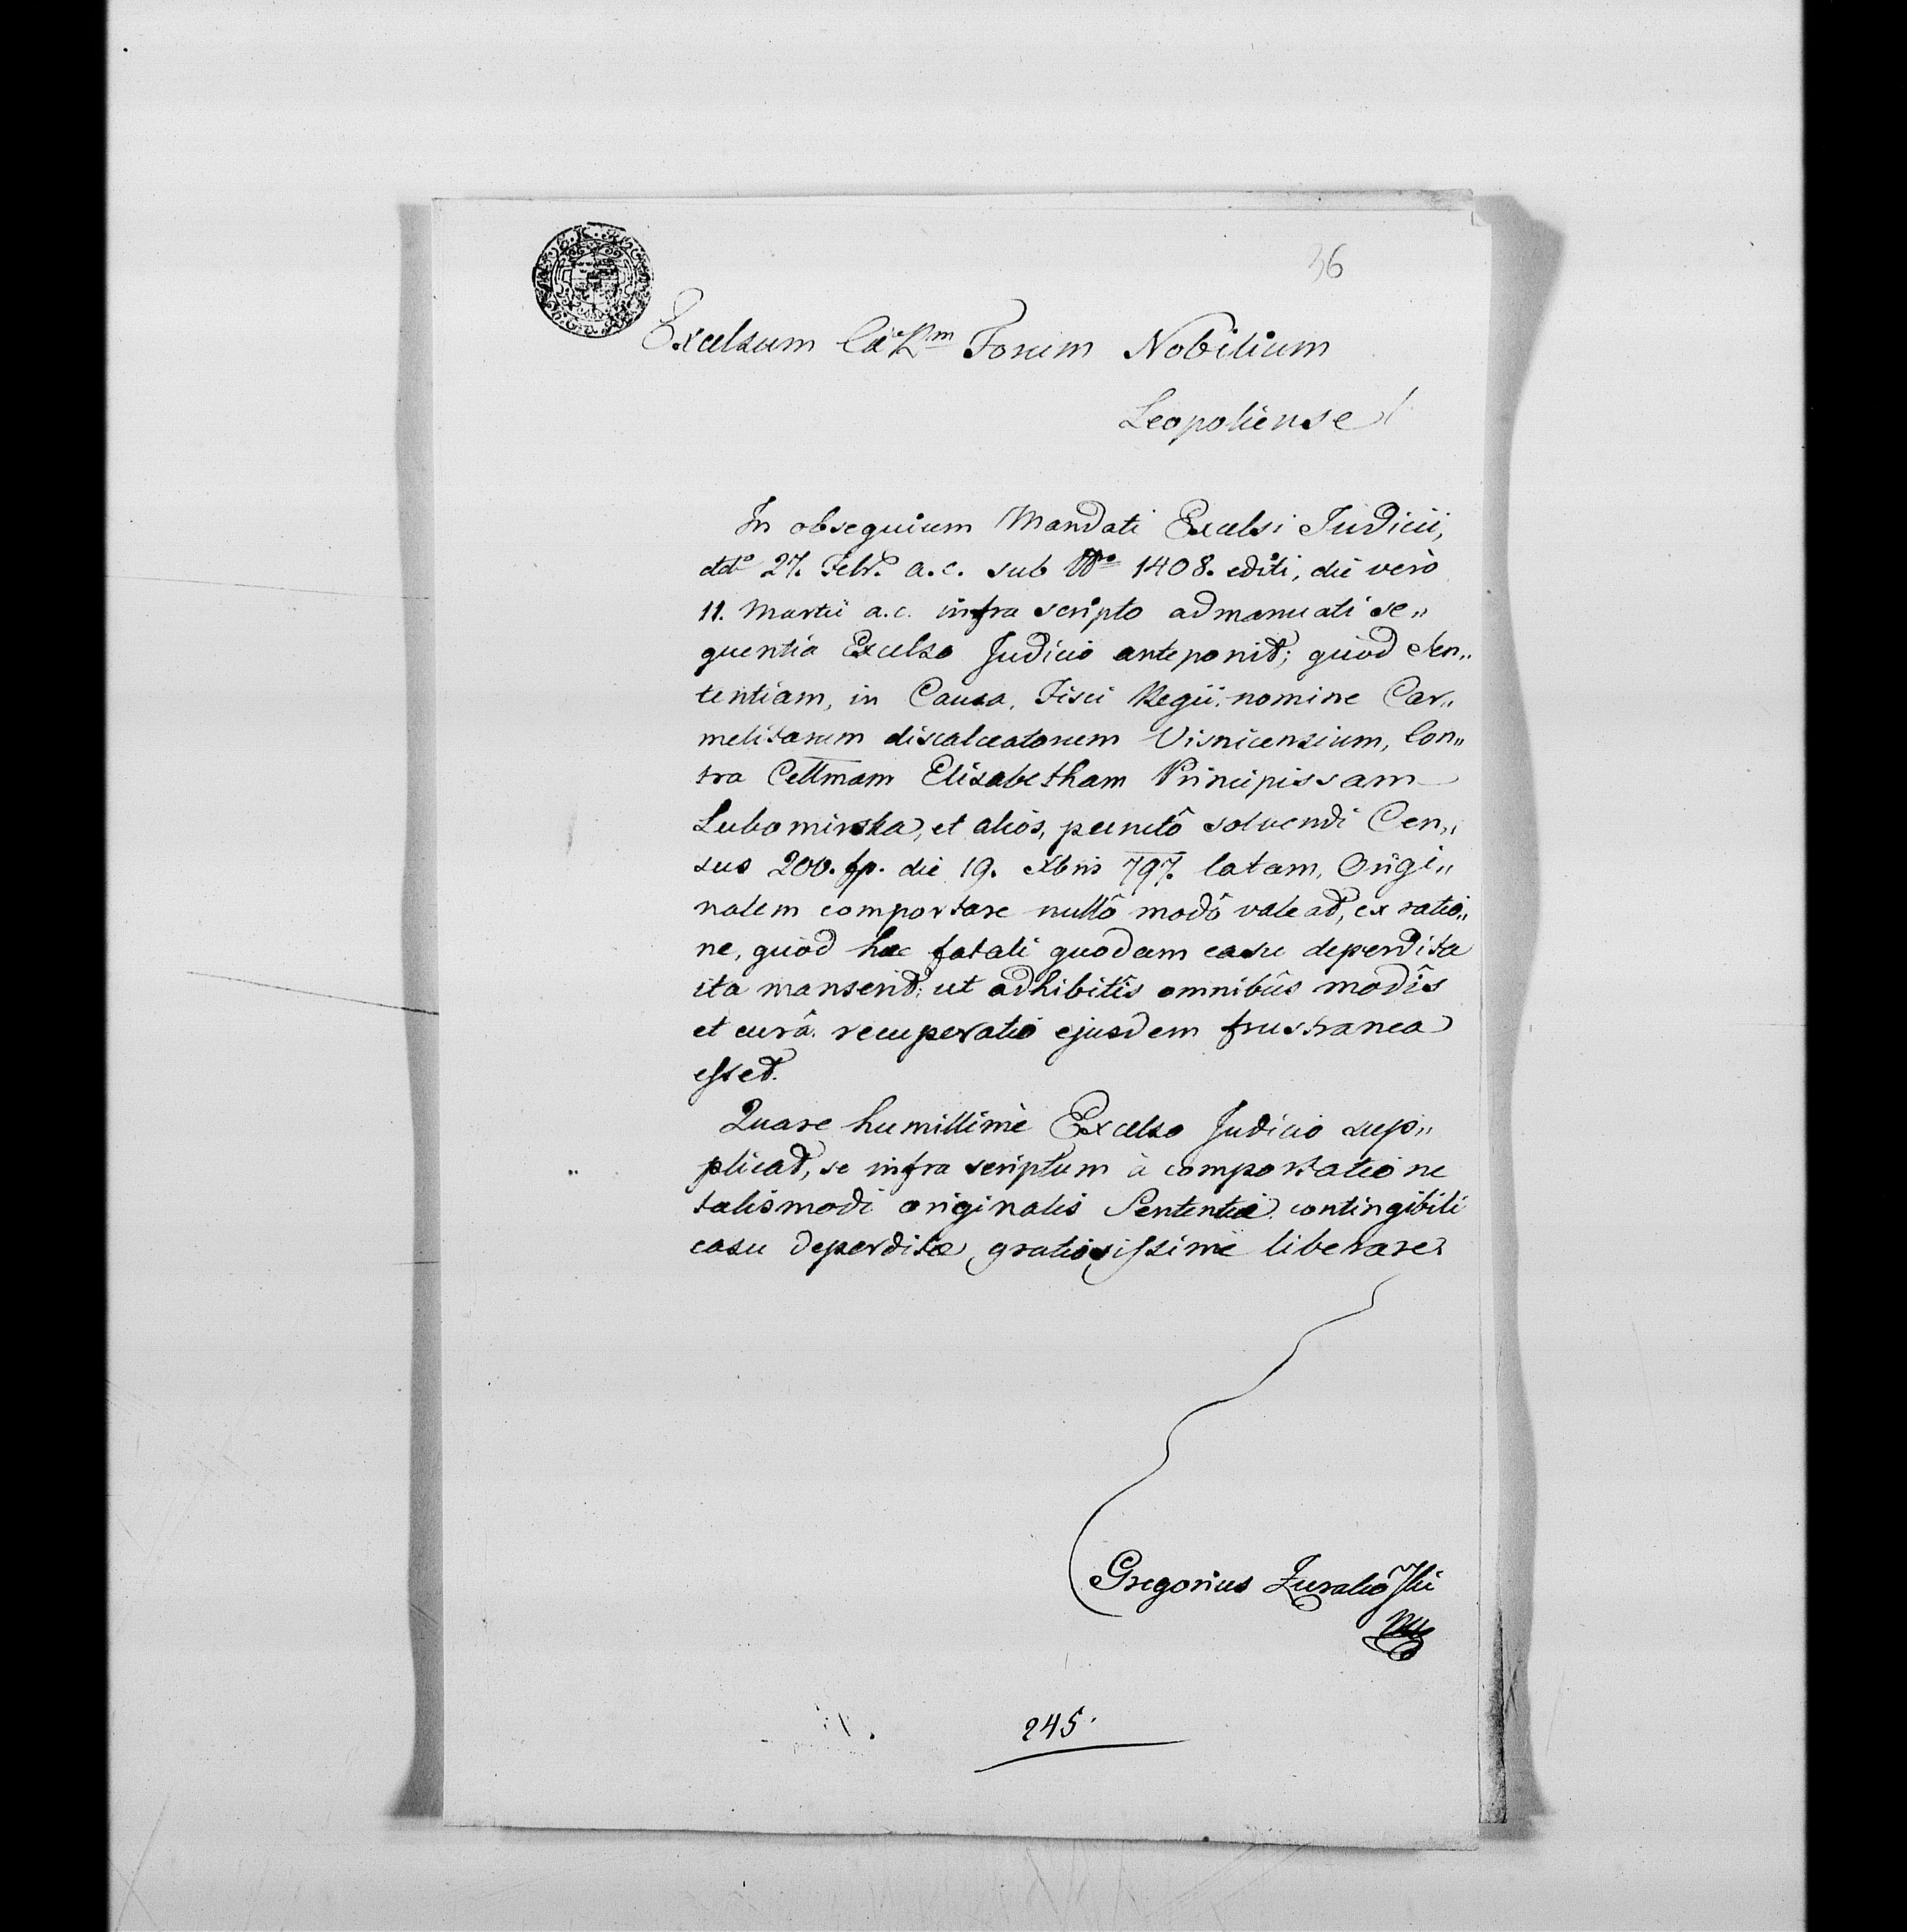 36
Excelsum Cæ R̅m̅ Forum Nobilium
Leopoliense
In obsequium Mandati Excelsi Judicii,
ddto 27. Febr. a.c. sub Nro 1408. editi, die verò
11. Martii a.c. infra scripto admanuati se„
quentia Excelso Judicio anteponit; quòd Sen„
tentiam, in Causa, Fisci Regii nomine Car„
melitarum discalceatorum Visnicensium, Con„
tra Cellmam Elisabetham Principissam
Lubomirska, et alios, punctô solvendi Cen„
sus 200. fp. die 19. Xbris 797. latam, Origi„
nalem comportare nullô modô valeat, ex ratio„
ne, quòd hæc fatali quodam casu deperdita
ita manserit; ut adhibitîs omnibûs modîs
et curâ recuperatio ejusdem frustranea
esset.
Quare humillimè Excelso Judicio sup„
plicat, se infra scriptum à comportatione
talismodi originalis Sententiæ contingibili
casu deperditæ, gratiosissimè liberare
Gregorius
245.